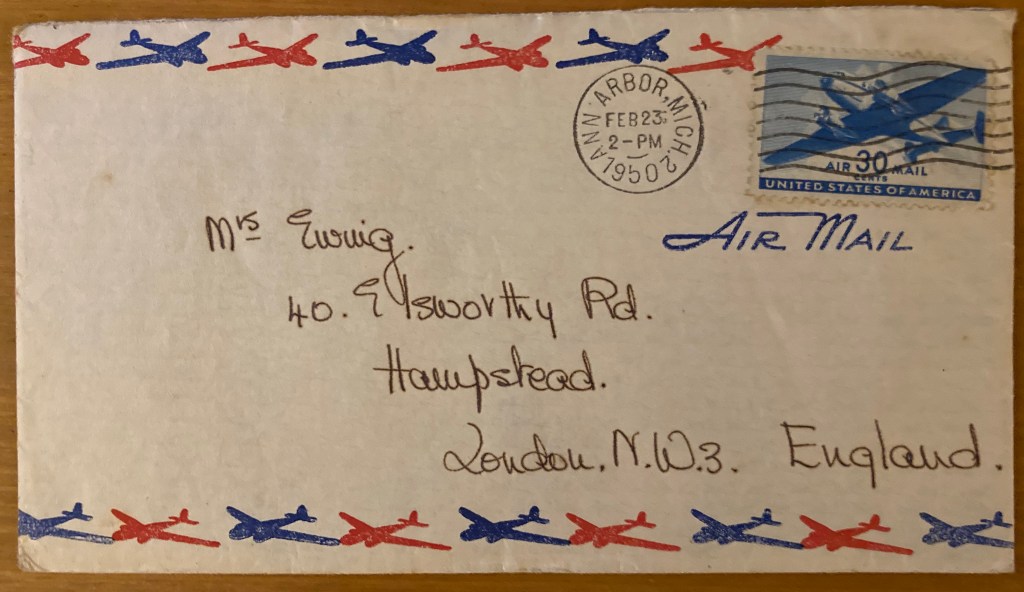 ANN ARBOR, MICH. 2
FEB 23
2-PM
1950
AIR 30 MAIL
CENTS
UNITED STATES OF AMERICA
AIR MAIL
Mrs Ewing.
40. Elsworthy Rd.
Hampstead.
London, N.W.3. England.